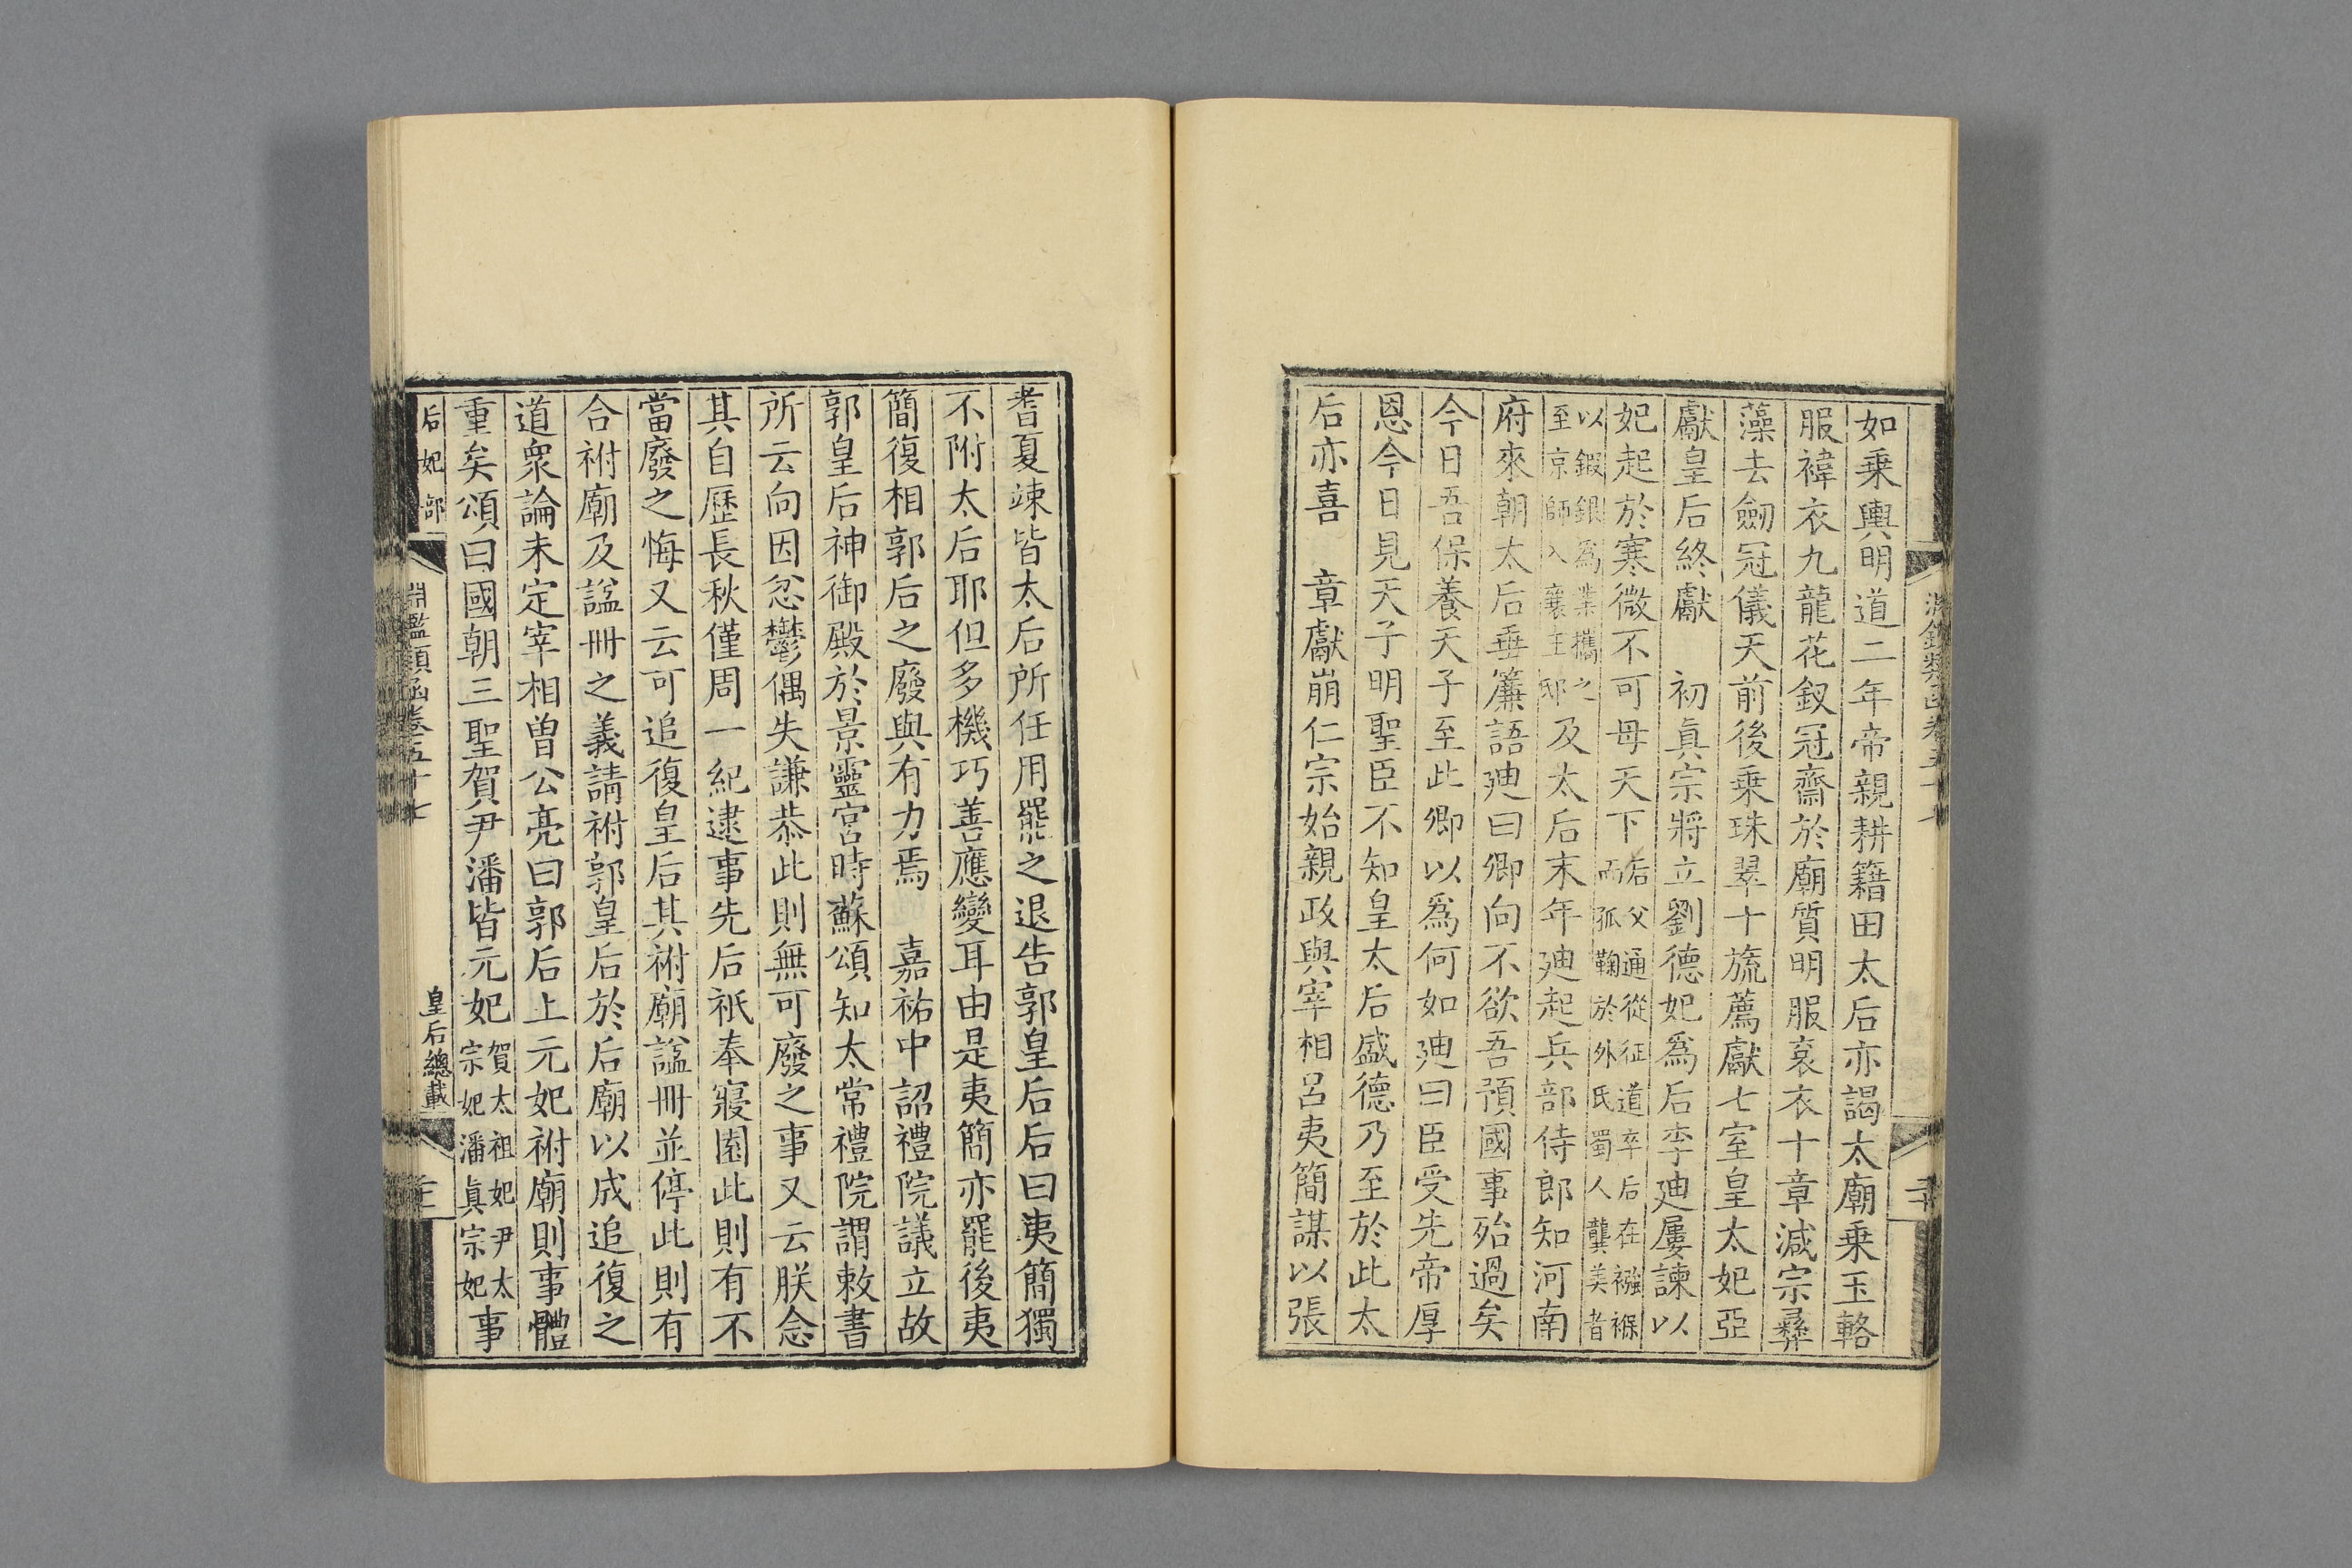 如乗輿明道二年帝親耕籍田太后亦謁太廟乗玉輅
服褘衣九龍花釵冠齋於廟質明服袞衣十章減宗彞
藻去劒冠儀天前後乗珠翠十旒薦獻七室皇太妃亞
獻皇后終獻　初眞宗將立劉德妃爲后李迪屢諫以
妃起於寒微不可母天下后父通從征道卒后在襁褓而孤鞠於外氏蜀人龔美者
以鍜銀爲業攜之至京師入襄王邸及太后末年迪起兵部侍郎知河南
府來朝太后垂簾語迪曰卿向不欲吾預國事殆過矣
今日吾保養天子至此卿以爲何如迪曰臣受先帝厚
恩今日見天子明聖臣不知皇太后盛德乃至於此太
后亦喜　章獻崩仁宗始親政與宰相呂夷簡謀以張
耆夏竦皆太后所任用罷之退告郭皇后后曰夷簡獨
不附太后耶但多機巧善應變耳由是夷簡亦罷後夷
簡復相郭后之廢與有力焉　嘉祐中詔禮院議立故
郭皇后神御殿於景靈宮時蘇頌知太常禮院謂敕書
所云向因忿鬱偶失謙恭此則無可廢之事又云朕念
其自歷長秋僅周一紀逮事先后祇奉寢園此則有不
當廢之悔又云可追復皇后其祔廟諡冊並停此則有
合祔廟及諡冊之義請祔郭皇后於后廟以成追復之
道衆論未定宰相曾公亮曰郭后上元妃祔廟則事體
重矣頌曰國朝三聖賀尹潘皆元妃賀太祖妃尹太宗妃潘眞宗妃事
后妃部
淵鑑類函卷五十七
皇后總載